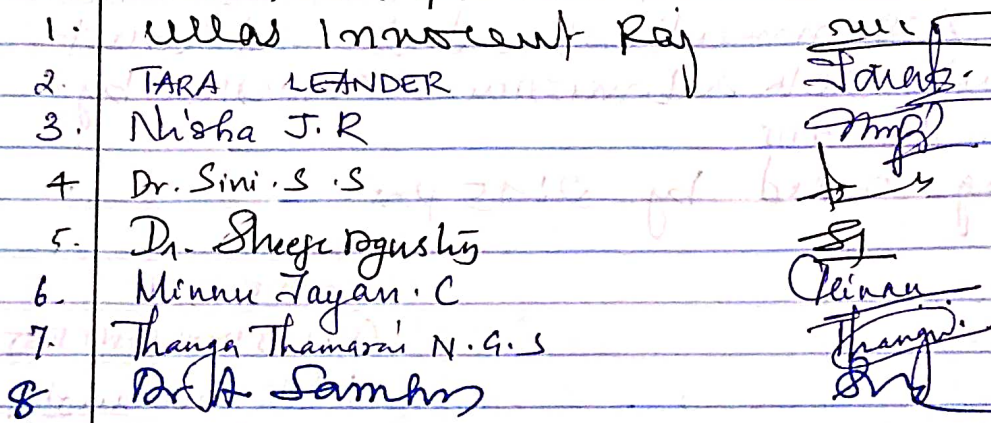 1. Ullas Innocent Raj
2. TARA LEANDER
3. Nisha J.R
4 Dr. Sini.S.S
5. Dr. Sheeje Agustin
6. Minnu Jayan.C Minnu
7. Thanga Thamarai N.G.S Thanga
8 Dr A